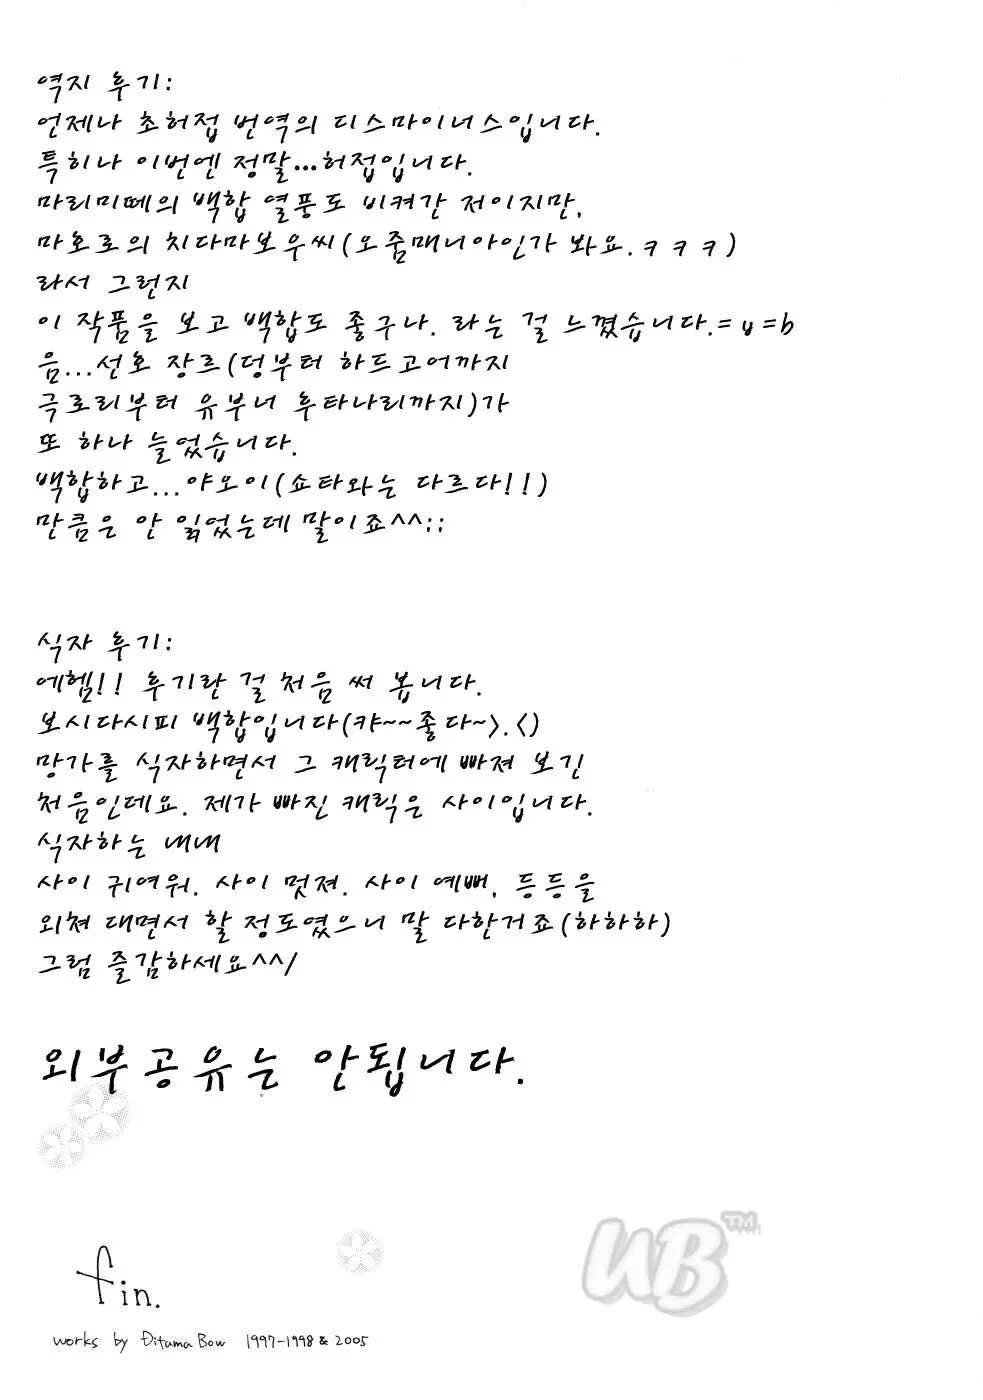 역지 후기:
언제나 초허접 번역의 디스마이너스입니다.
특히나 이번엔 정말...허접입니다.
마리미떼의 백합 열풍도 비켜간 저이지만,
마호로의 치다마보우씨(오줌매니아인가 봐요.ㅋㅋㅋ)
라서 그런지
이 작품을 보고 백합도 좋구나. 라는 걸 느꼈습니다.=ㅂ=b
음...선호 장르(덩부터 하드고어까지
극로리부터 유부녀 후타나리까지)가
또 하나 늘었습니다.
백합하고...야오이(쇼타와는 다르다!!)
만큼은 안 읽었는데 말이죠^^;;
식자 후기:
에헴!! 후기란 걸 처음 써 봅니다.
보시다시피 백합입니다(캬~~좋다~>.<)
망가를 식자하면서 그 캐릭터에 빠져 보긴
처음인데요. 제가 빠진 캐릭은 사이입니다.
식자하는 내내
사이 귀여워. 사이 멋져. 사이 예뻐. 등등을
외쳐 대면서 할 정도였으니 말 다한거죠(하하하)
그럼 즐감하세요^^/
외부공유는 안됩니다.
UB™
fin.
works by Ditama Bow 1997-1998 & 2005